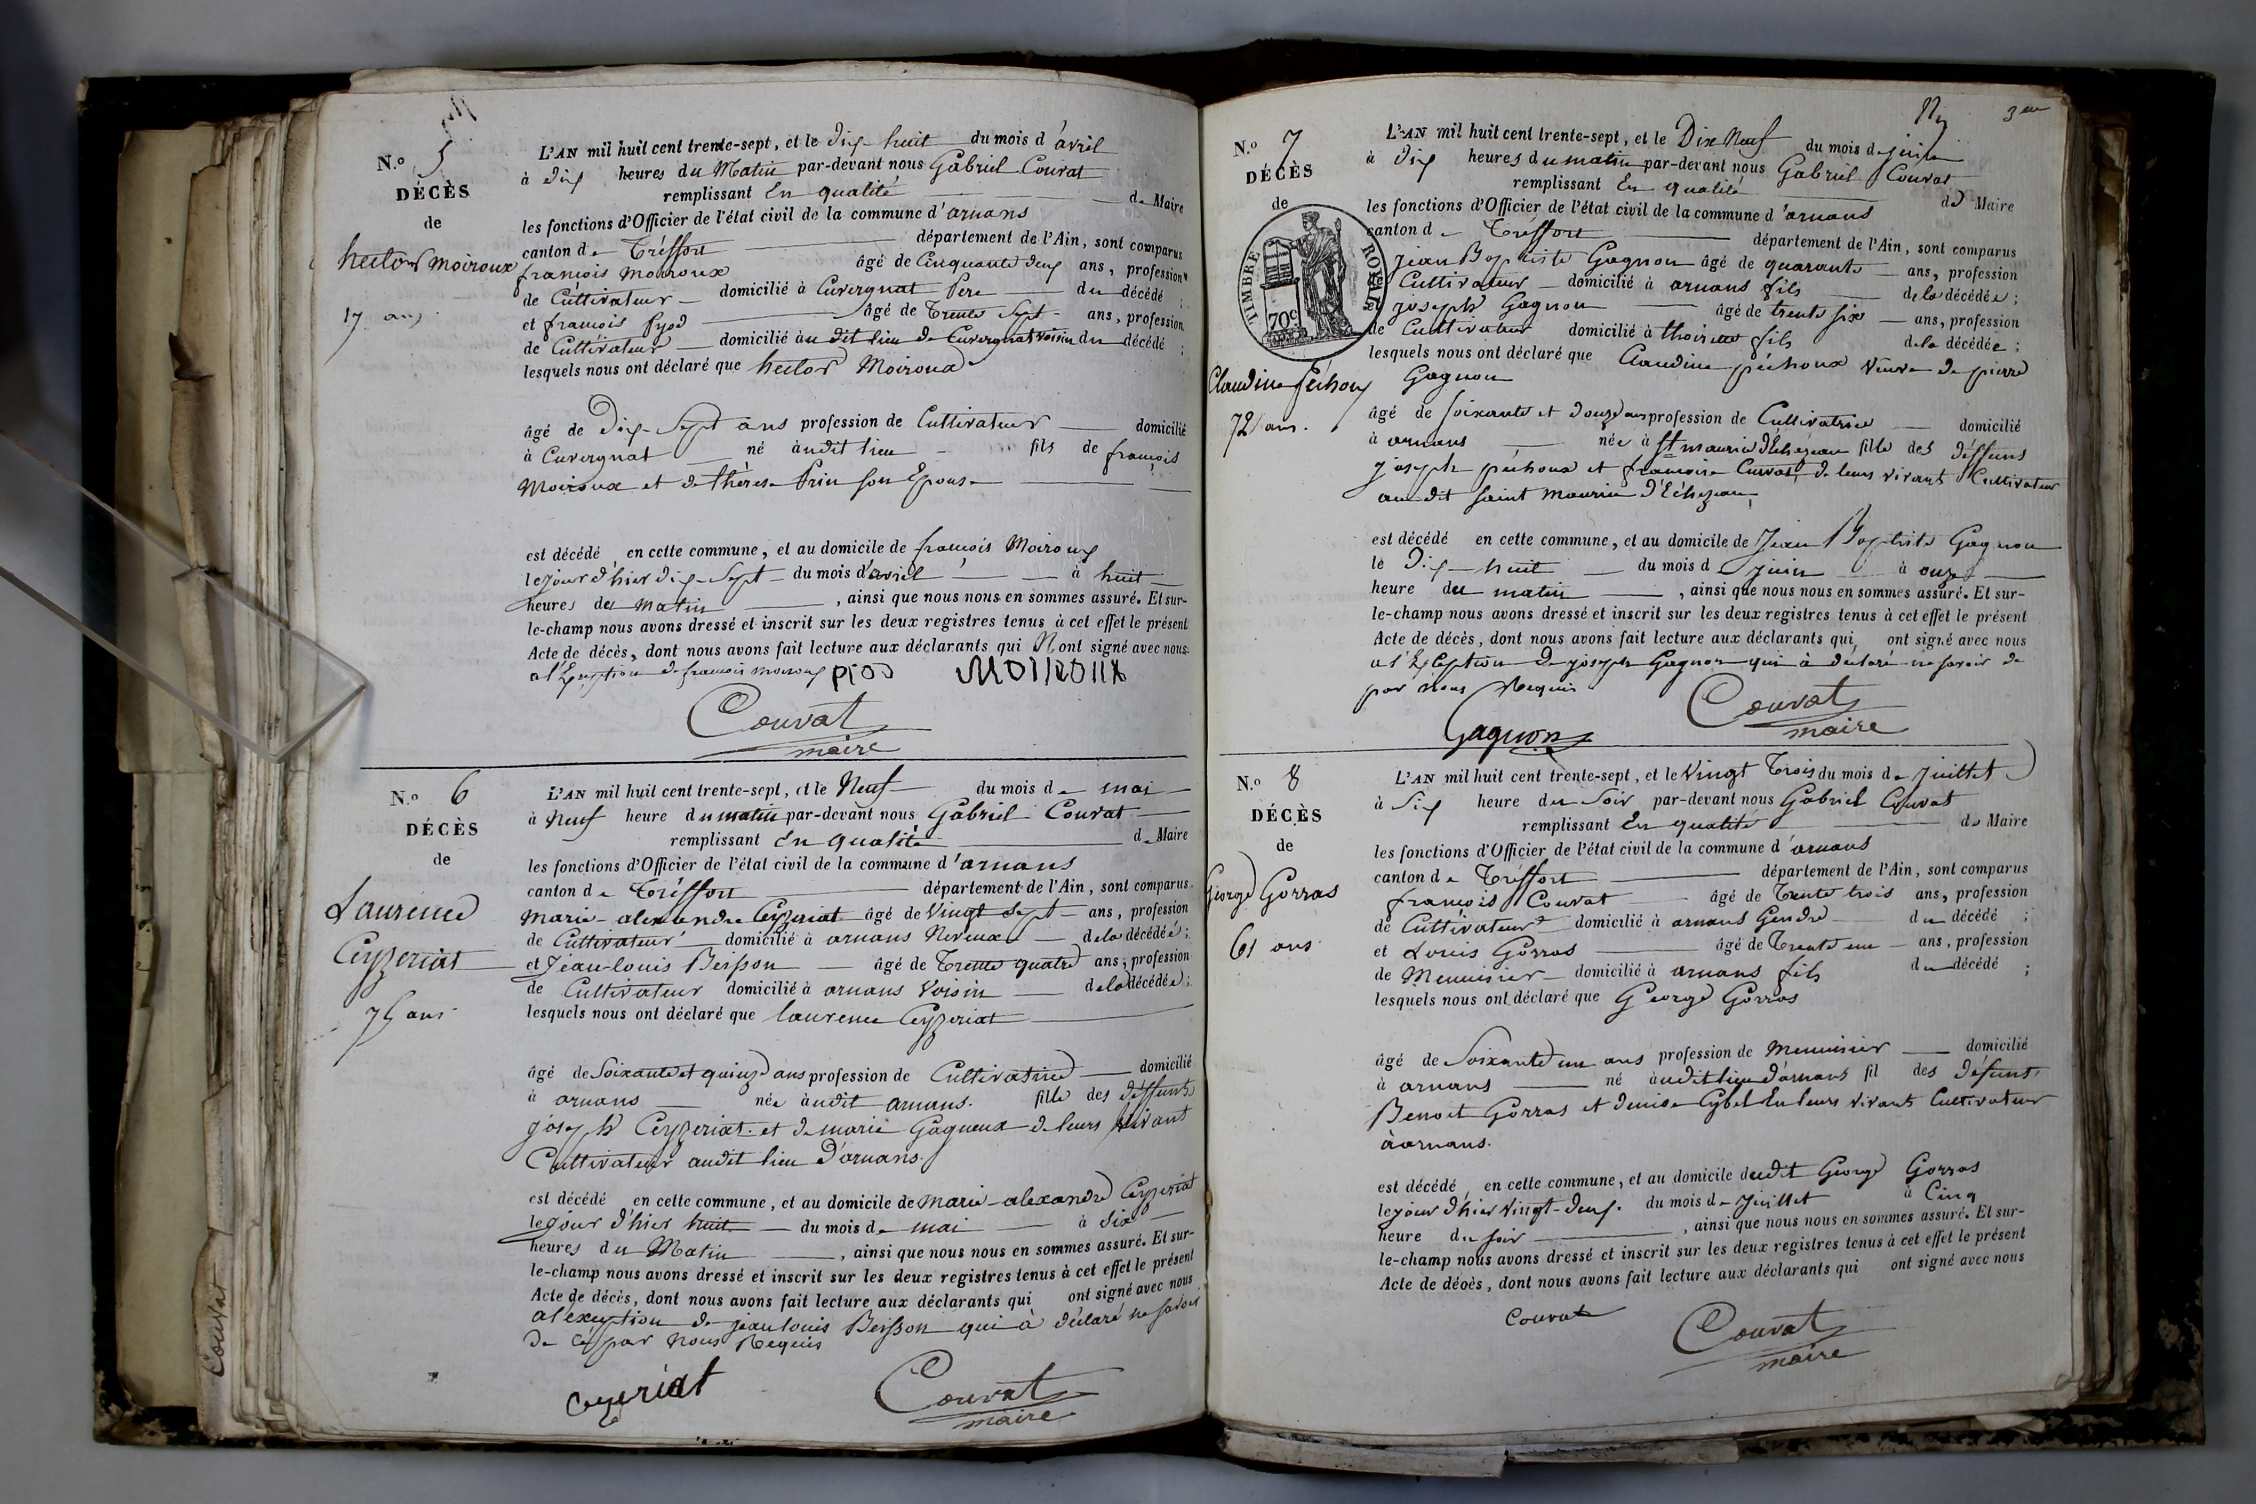 N.o 5
DÉCÈS
de
hector Moiroux
17 ans.
L'AN mil huit cent trente-sept, et le dix huit du mois d'avril
à dix heures du Matin par-devant nous Gabriel Couvat
remplissant En qualité de Maire
les fonctions d'Officier de l'état civil de la commune d'arnans
canton de Tréffort département de l'Ain, sont comparus
françois Moiroux âgé de Cinquante deux ans, profession
de Cultivateur domicilié à Cuvergnat Pere du décédé ;
et françois Pyod âgé de Trente Sept ans, profession
de Cultivateur domicilié au dit lieu de Cuvergnat voisin du décédé ;
lesquels nous ont déclaré que hector Moiroux
âgé de Dix-Sept ans profession de Cultivateur domicilié
à Cuvergnat né audit lieu fils de françois
Moiroux et de thérèse Prin son Epouse
est décédé en cette commune, et au domicile de françois Moiroux
le jour d'hier dix-Sept du mois d'avril à huit
heures du matin , ainsi que nous nous en sommes assuré. Et sur-
le-champ nous avons dressé et inscrit sur les deux registres tenus à cet effet le présent
Acte de décès, dont nous avons fait lecture aux déclarants qui N ont signé avec nous
a l'Exception de francois moiroux PIOD MOIROUX
Couvat
maire
N.o 6
DÉCÈS
de
Laurence
Ceyzeriat
75 ans
L'AN mil huit cent trente-sept, et le Neuf du mois de mai
à Neuf heure du matin par-devant nous Gabriel Couvat
remplissant En qualité de Maire
les fonctions d'Officier de l'état civil de la commune d'arnans
canton de Tréffort département de l'Ain, sont comparus
Marie-alexandre Ceyzeriat âgé de Vingt Sept ans, profession
de Cultivateur domicilié à arnans Neveux de la décédée ;
et Jean-louis Beisson âgé de Trente quatre ans, profession
de Cultivateur domicilié à arnans Voisin de la décédée ;
lesquels nous ont déclaré que laurence Ceyzeriat
âgé de Soixante et quinze ans profession de Cultivatrice domicilié
à arnans née audit arnans. fille des déffunts
joseph Ceyzeriat et de marie Gagneux de leurs vivant
Cultivateur audit lieu d'arnans.
est décédé en cette commune, et au domicile de Marie-alexandre Ceyzeriat
le jour d'hier huit du mois de mai à Six
heures du Matin , ainsi que nous nous en sommes assuré. Et sur-
le-champ nous avons dressé et inscrit sur les deux registres tenus à cet effet le présent
Acte de décès, dont nous avons fait lecture aux déclarants qui ont signé avec nous
a l'éxeption de jean louis Beisson qui à déclaré ne savoir
de ce par Nous Requis
Ceyzeriat
Couvat
maire
3 em
N.o 7
DÉCÈS
de
TIMBRE ROYAL
70 c
Claudine Péchoux
72 ans.
L'AN mil huit cent trente-sept, et le Dix Neuf du mois de juin
à dix heures du matin par-devant nous Gabriel Couvat
remplissant En qualité de Maire
les fonctions d'Officier de l'état civil de la commune d'arnans
canton de Tréffort département de l'Ain, sont comparus
jean Baptiste Gagnon âgé de quarante ans, profession
Cultivateur domicilié à arnans fils de la décédée ;
joseph Gagnon âgé de trente six ans, profession
de Cultivateur domicilié à thoirette fils de la décédée ;
lesquels nous ont déclaré que Claudine péchoux veuve de pierre
Gagnon
âgé de soixante et douze ans profession de Cultivatrice domicilié
à arnans née à St maurice d'Echezeau fille des déffuns
joseph péchoux et françoise Curvat, de leurs vivant Cultivateur
au dit saint Maurice d'Echezeau,
est décédé en cette commune, et au domicile de Jean Baptiste Gagnon
le Dix-huit du mois de juin à onze
heure du matin , ainsi que nous nous en sommes assuré. Et sur-
le-champ nous avons dressé et inscrit sur les deux registres tenus à cet effet le présent
Acte de décès, dont nous avons fait lecture aux déclarants qui ont signé avec nous
a l'Exception de joseph Gagnon qui à déclaré ne savoir de
par nous Requis
Gagnon
Couvat
maire
N.o 8
DÉCÈS
de
George Gorras
61 ans
L'AN mil huit cent trente-sept, et le Vingt Trois du mois de Juillet
à Six heure du Soir par-devant nous Gabriel Couvat
remplissant En qualité de Maire
les fonctions d'Officier de l'état civil de la commune d'arnans
canton de Tréffort département de l'Ain, sont comparus
françois Couvat âgé de Trente trois ans, profession
de Cultivateur domicilié à arnans Gendre du décédé ;
et Louis Gorras âgé de Trente un ans, profession
de Menuisier domicilié à arnans fils du décédé ;
lesquels nous ont déclaré que George Gorras
âgé de Soixante un ans profession de Menuisier domicilié
à arnans né audit lieu d'arnans fil des défunts
Benoit Gorras et denise Cybel En leurs vivants Cultivateur
à arnans.
est décédé en cette commune, et au domicile dudit George Gorras
le jour d'hier Vingt-deux. du mois de Juillet à Cinq
heure du soir , ainsi que nous nous en sommes assuré. Et sur-
le-champ nous avons dressé et inscrit sur les deux registres tenus à cet effet le présent
Acte de décès, dont nous avons fait lecture aux déclarants qui ont signé avec nous
Couvat
Couvat
maire
Couvat